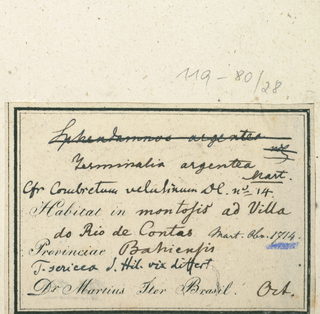 119-80/28
Sphendamnos argentea
Terminalia argentea Mart.
Cfr Combretum velutinum DC. nº 14
Habitat in montosis ad Villa
do Rio de Contas Mart. Obs. 1914.
Provinciae Bahiensis
T. sericea S. Hil. vix differt
Dr Martius Iter Brasil. Oct.